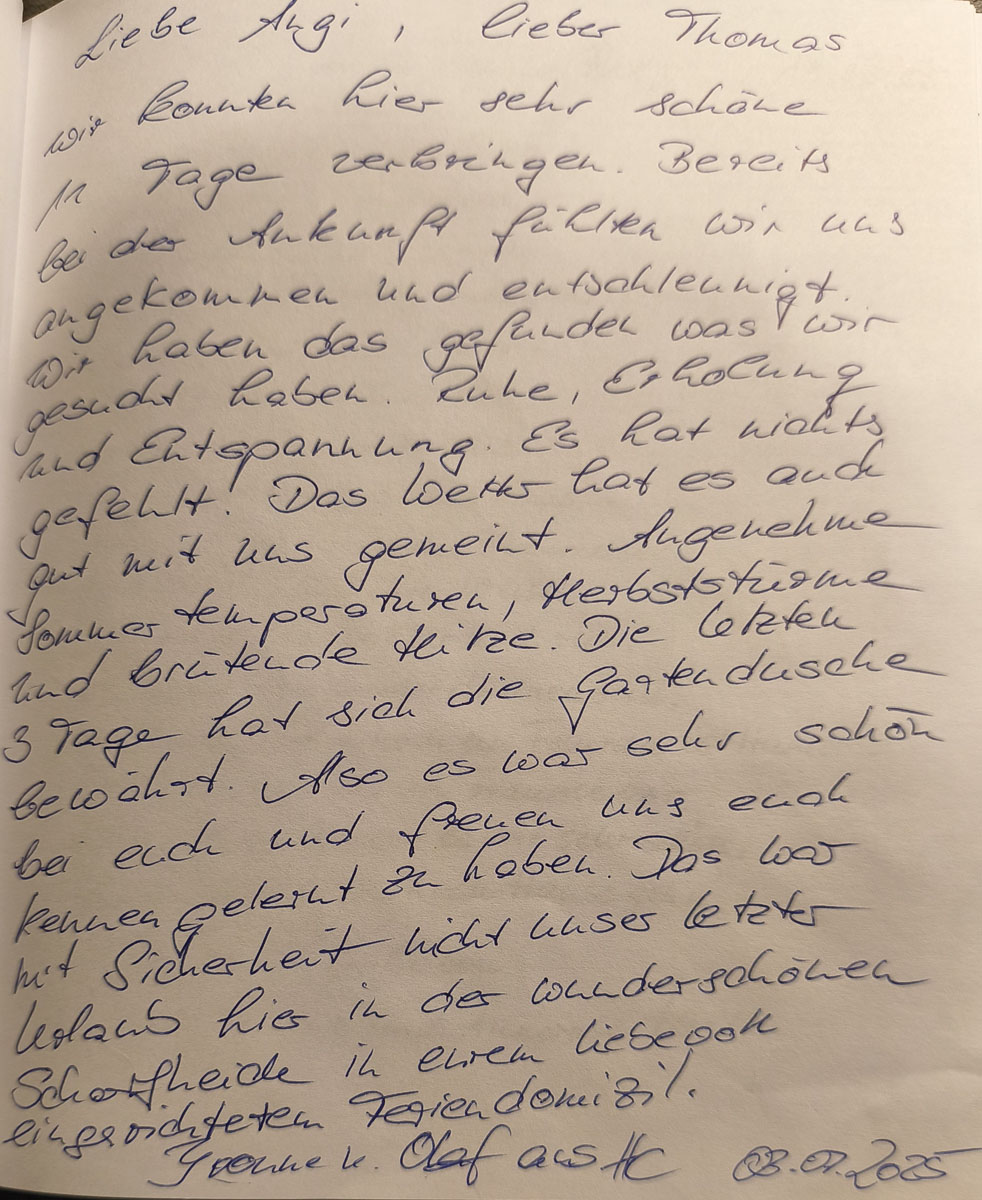 Liebe Angi, lieber Thomas
wir konnten hier sehr schöne
11 Tage verbringen. Bereits
bei der Ankunft fühlten wir uns
angekommen und entschleunigt.
Wir haben das gefunden was wir
gesucht haben. Ruhe, Erholung
und Entspannung. Es hat nichts
gefehlt! Das Wetter hat es auch
gut mit uns gemeint. Angenehme
Sommertemperaturen, Herbststürme
und brütende Hitze. Die letzten
3 Tage hat sich die Gartendusche
bewährt. Also es war sehr schön
bei euch und freuen uns euch
kennengelernt zu haben. Das war
mit Sicherheit nicht unser letzter
Urlaub hier in der wunderschönen
Schorfheide in eurem liebevoll
eingerichteten Feriendomizil.
Yvonne u. Olaf aus HC 03.07.2025